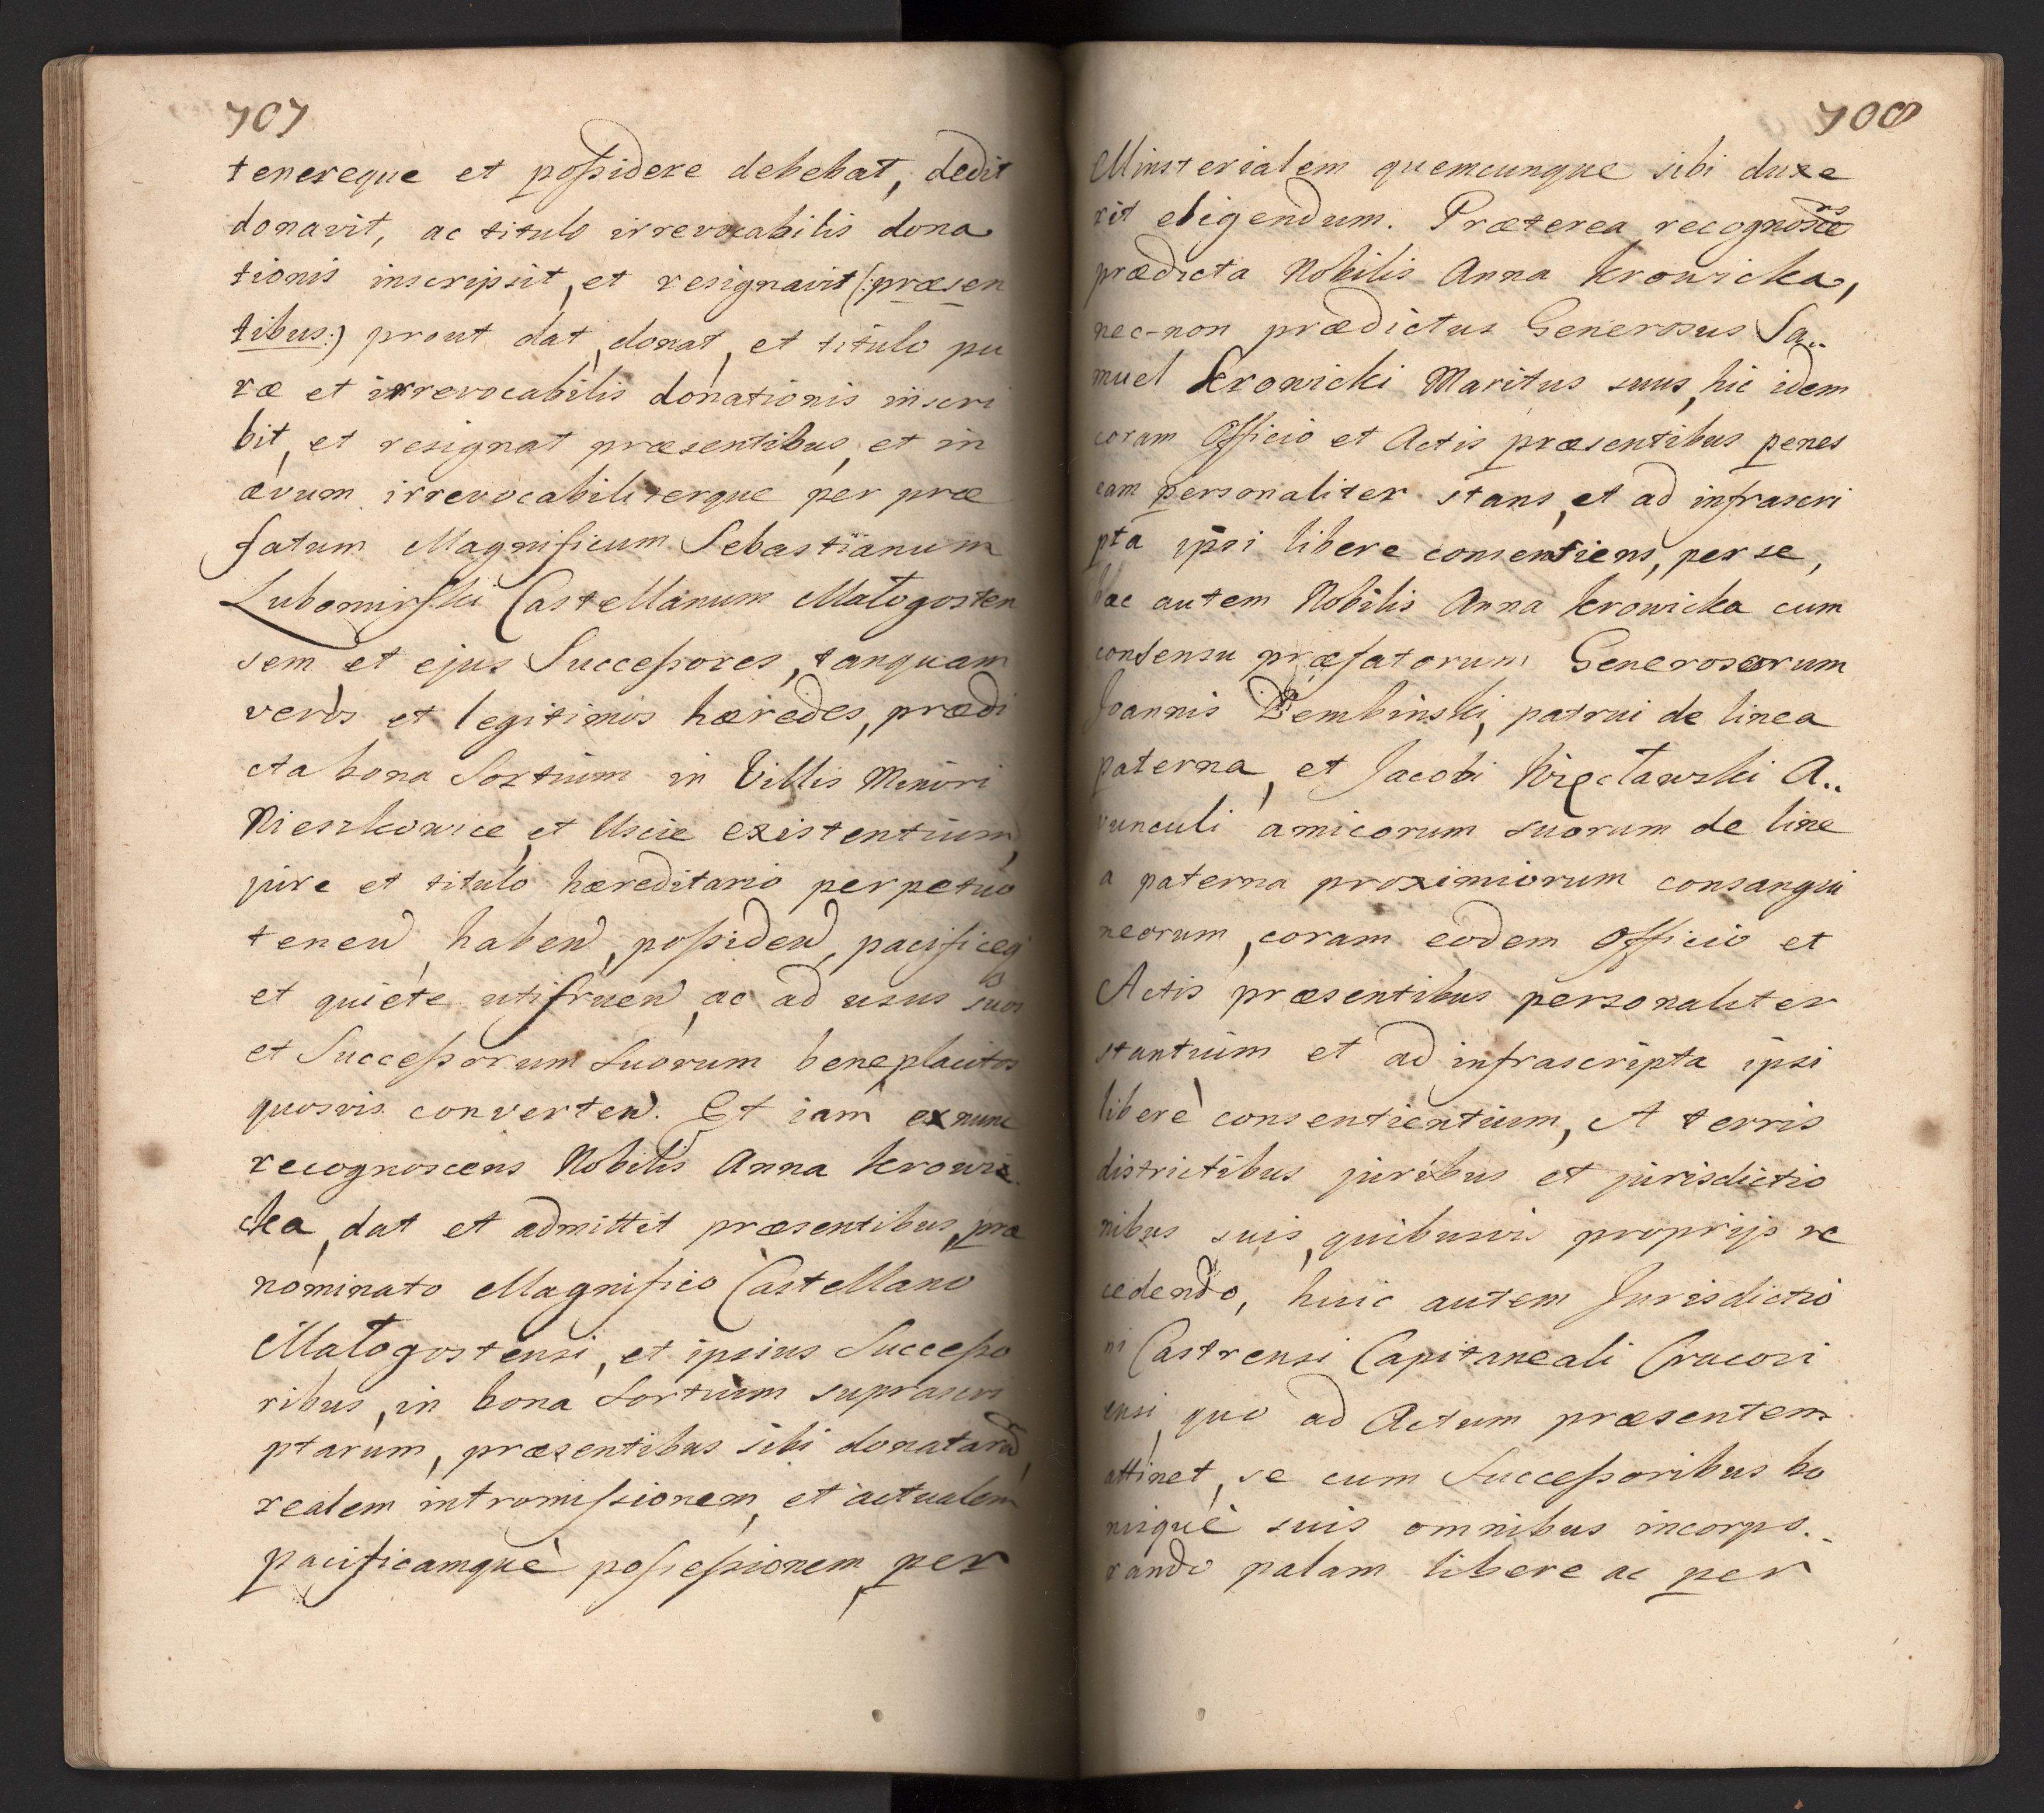 707
tenereque et poßidere debebat, dedit
donavit, ac titulo irrevocabilis dona
tionis inscripsit, et resignavit (: præsen
tibus:) prout dat, donat, et titulo pu
ræ et irrevocabilis donationis inscri
bit, et resignat præsentibus, et in
ævum irrevocabiliterque per præ
fatum Magnificum Sebastianum
Lubomirski Castellanum Małogosten
sem et ejus Succeßores, tanquam
veros et legitimos hæredes, prædi
cta bona Sortium in Villis Minori
Nieszkowice, et Uście existentium,
jure et titulo hæreditario perpetuo
tenend, habend, poßidend, pacificeq
et quiete utifruend, ac ad usus suos
et Succeßorum suorum beneplacitos
quosvis convertend. Et iam ex nunc
recognoscens Nobilis Anna Krowi
cka, dat et admittit præsentibus, præ
nominato Magnifico Castellano
Małogostensi, et ipsius Succeßo
ribus, in bona Sortium suprascri
ptarum, præsentibus sibi donatarum,
realem intromißionem, et actualem
pacificamquè poßeßionem, per
708
Minsterialem quemcunque sibi duxe
rit eligendum. Præterea recognoscens
prædicta Nobilis Anna Krowicka,
nec-non prædictus Generosus Sa..
muel Krowicki Maritus suus, hic idem
coram Officio et Actis præsentibus penes
eam personaliter stans, et ad infrascri
pta ipsi libere consentiens, per se,
hac autem Nobilis Anna Krowicka cum
consensu præfatorum Generosorum
Joannis Dembinski, patrui de linea
paterna, et Jacobi Więcławski A..
vunculi amicorum suorum de line
a paterna proximiorum consangui
neorum, coram eodem Officio et
Actis præsentibus personaliter
stantium et ad infrascripta ipsi
liberè consentientium, A terris
districtibus juribus et jurisdictio
nibus suis, quibusvis proprijs re
cedendo, huic autem Jurisdictio
ni Castrensi Capitaneali Cracovi
ensi, quo ad Actum præsentem
attinet, se cum Succeßoribus bo
nisquè suis omnibus incorpo..
rando palam libere ac per